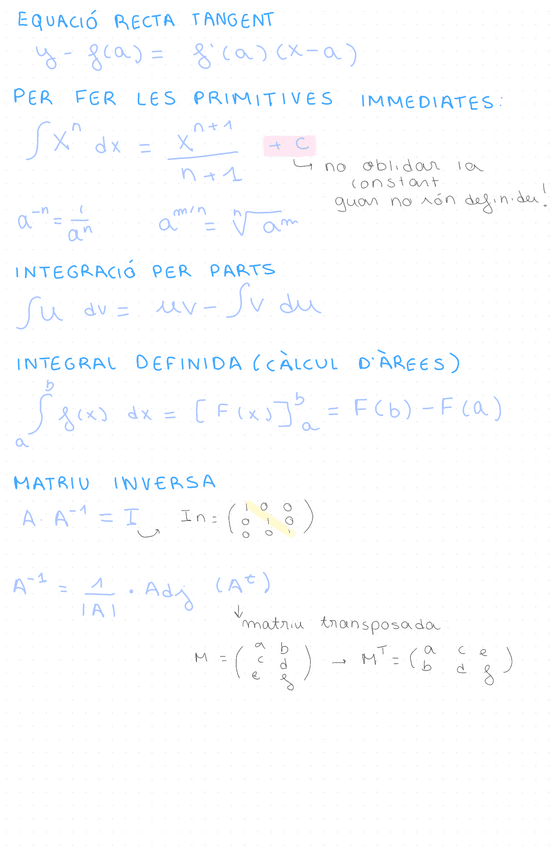 EQUACIÓ RECTA TANGENT
y - f(a) = f'(a) (x-a)
PER FER LES PRIMITIVES IMMEDIATES:
∫ x^n dx = x^(n+1) / (n+1) + C
↳ no oblidar la
constant
quan no són definides!
a^(-n) = 1/a^n    a^(m/n) = ⁿ√(a^m)
INTEGRACIÓ PER PARTS
∫u dv = uv - ∫v du
INTEGRAL DEFINIDA (CÀLCUL D'ÀREES)
∫_a^b f(x) dx = [F(x)]_a^b = F(b) - F(a)
MATRIU INVERSA
A · A^-1 = I → In = (1 0 0
0 1 0
0 0 1)
A^-1 = 1/|A| · Adj (A^t)
↓ matriu transposada
M = (a b
c d
e f) → M^T = (a c e
b d f)